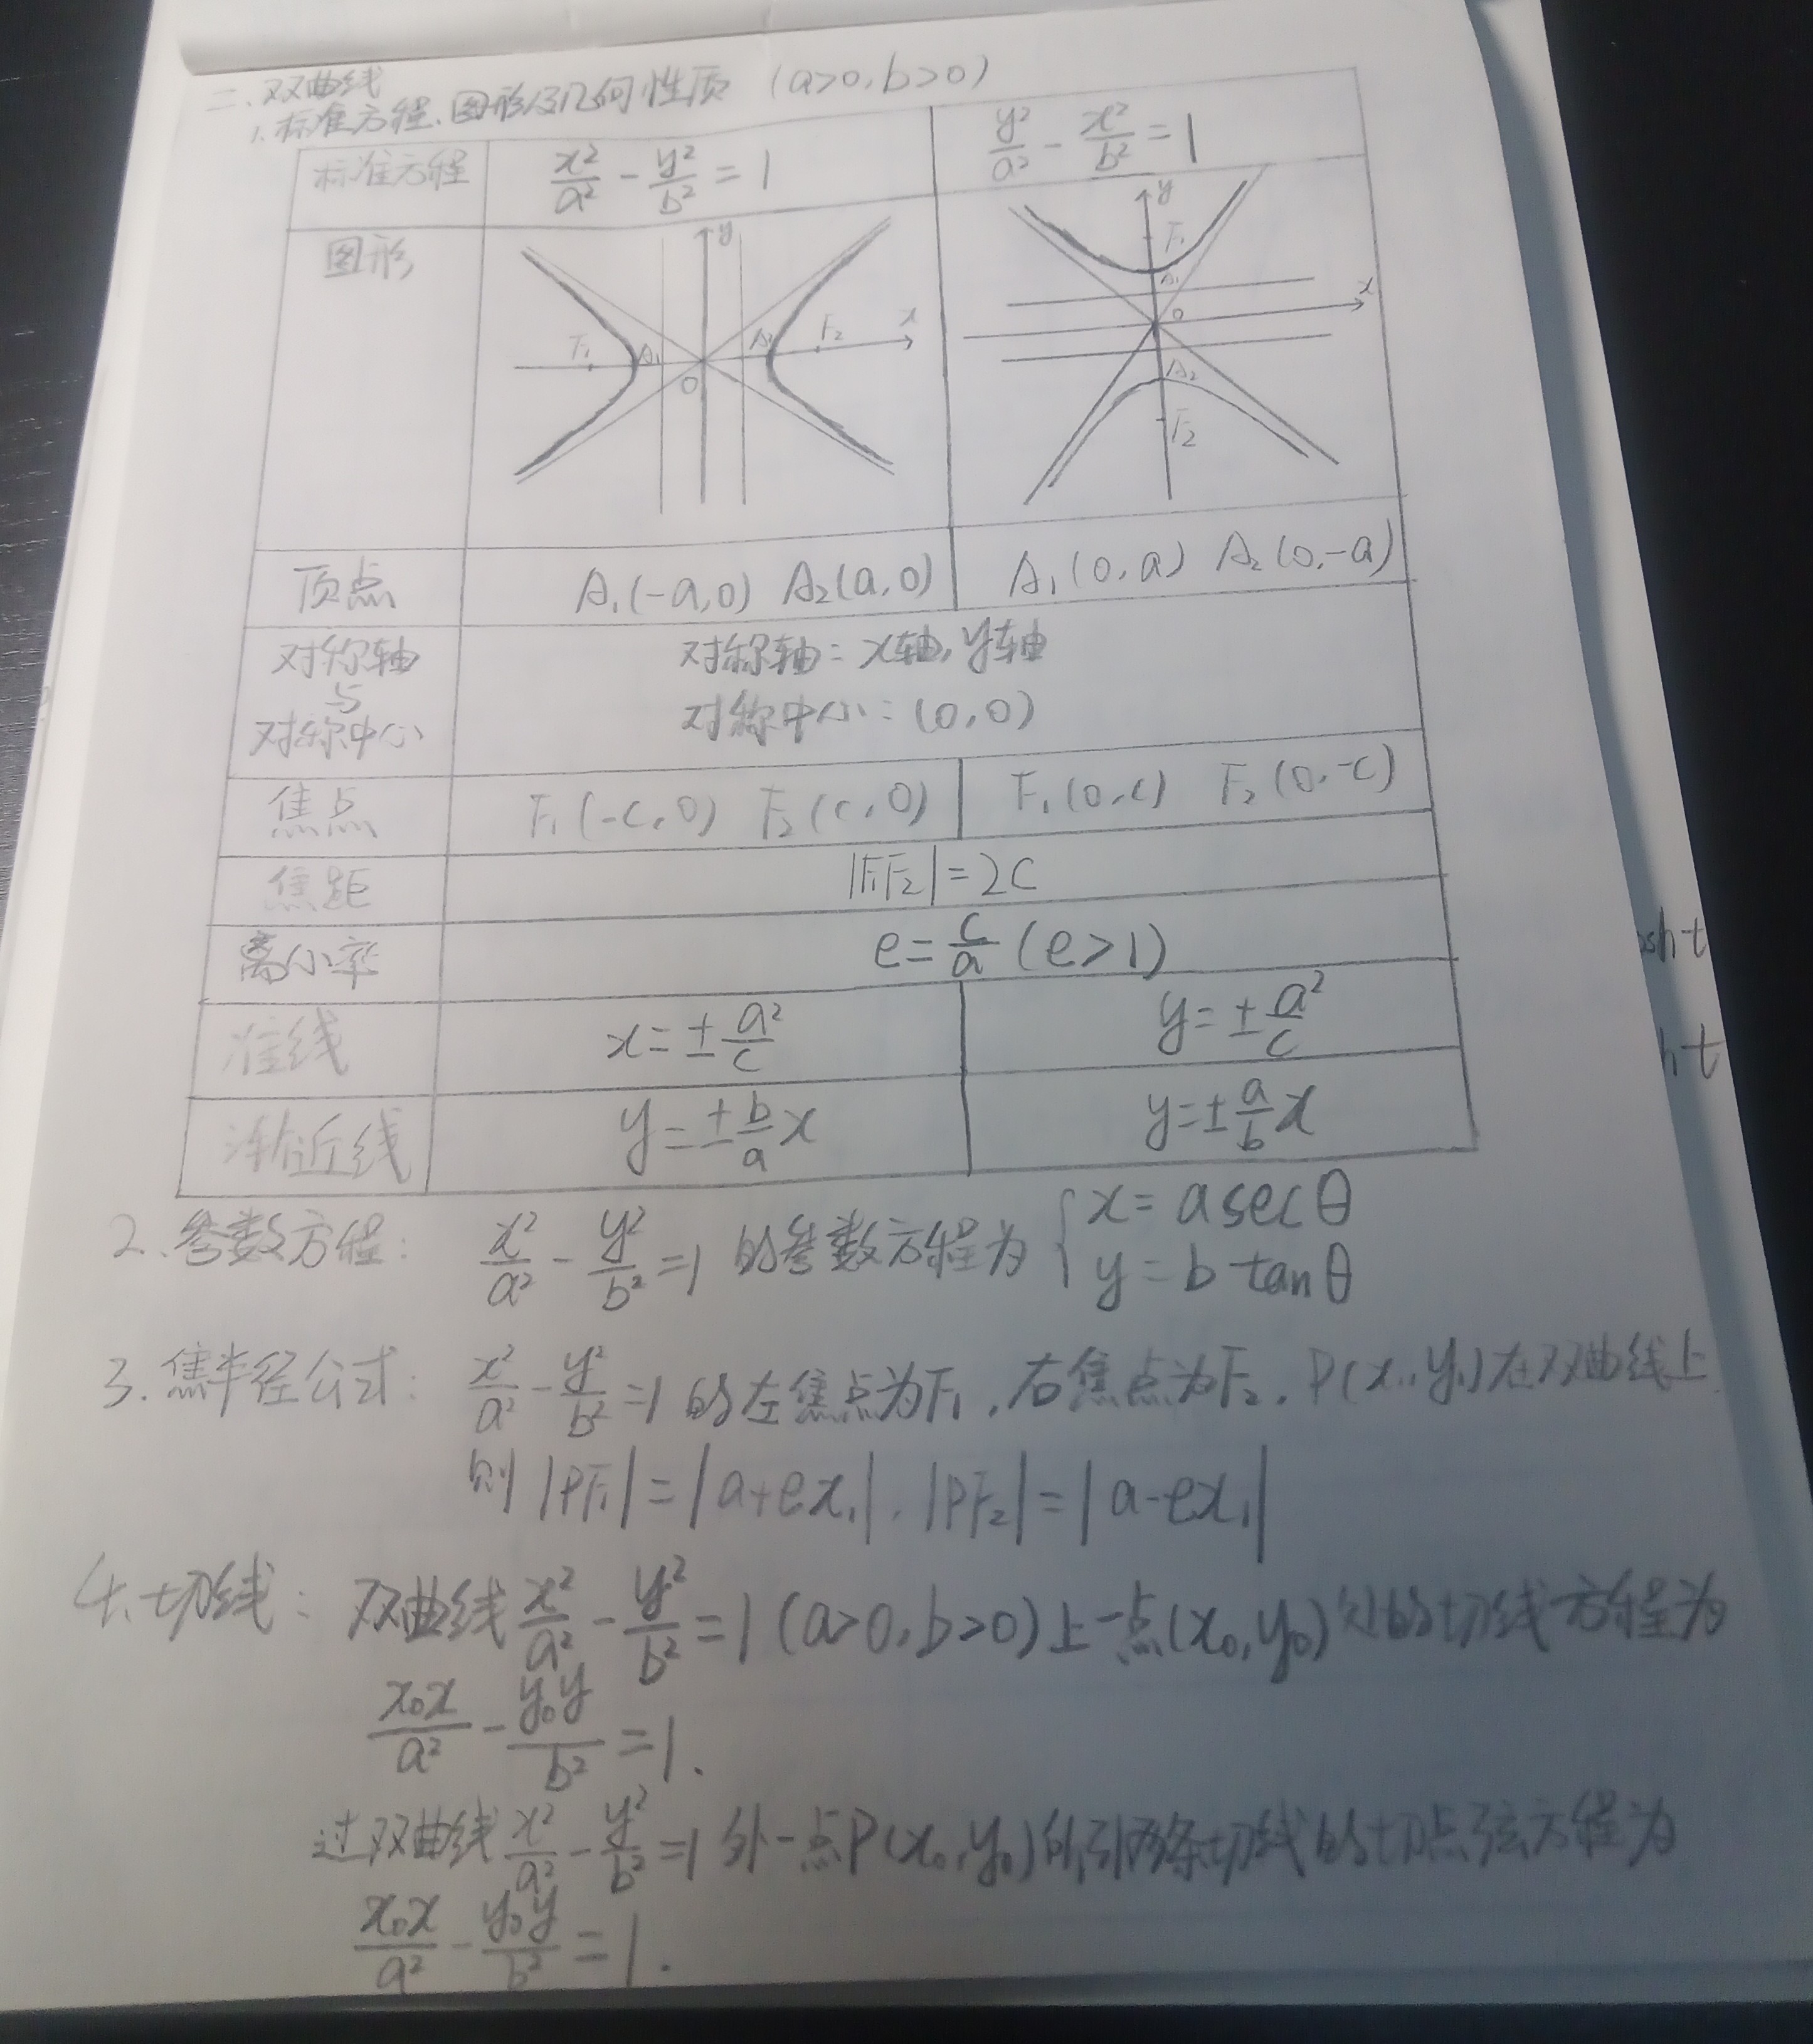 二、双曲线
1. 标准方程、图形及几何性质 (a>0, b>0)
标准方程 x²/a² - y²/b² = 1 y²/a² - x²/b² = 1
图形
y x O F₁ A₁ A₂ F₂
y x O F₁ A₁ A₂ F₂
顶点 A₁(-a,0) A₂(a,0) A₁(0,a) A₂(0,-a)
对称轴与对称中心
对称轴: x轴, y轴
对称中心: (0,0)
焦点 F₁(-c,0) F₂(c,0) F₁(0,c) F₂(0,-c)
焦距 |F₁F₂|=2c
离心率 e=c/a (e>1)
准线 x=±a²/c y=±a²/c
渐近线 y=±b/a x y=±a/b x
2. 参数方程: x²/a² - y²/b² = 1 的参数方程为 { x=a secθ
y=b tanθ
3. 焦半径公式: x²/a² - y²/b² = 1 的左焦点为F₁, 右焦点为F₂, P(x₁,y₁)在双曲线上
则 |PF₁|=|a+ex₁|, |PF₂|=|a-ex₁|
4. 切线: 双曲线 x²/a² - y²/b² = 1 (a>0, b>0) 上一点(x₀,y₀)处的切线方程为
x₀x/a² - y₀y/b² = 1.
过双曲线 x²/a² - y²/b² = 1 外一点P(x₀,y₀)所引两条切线的切点弦方程为
x₀x/a² - y₀y/b² = 1.
sh t
h t